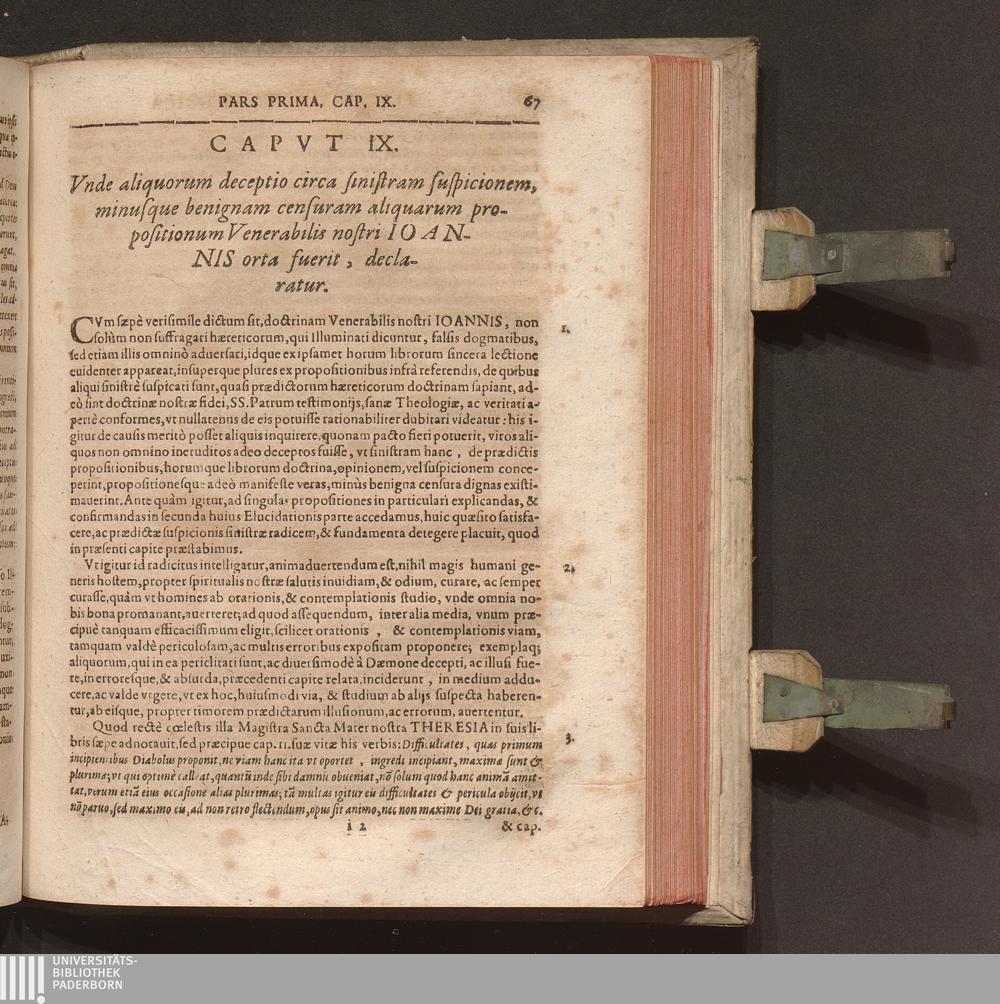 PARS PRIMA, CAP. IX. 67
CAPVT IX.
Vnde aliquorum deceptio circa siniſtram ſuſpicionem,
minuſque benignam cenſuram aliquarum pro-
poſitionum Venerabilis noſtri IOAN-
NIS orta fuerit, decla-
ratur.
CVm ſæpè veriſimile dictum ſit, doctrinam Venerabilis noſtri IOANNIS, non 1.
ſolùm non ſuffragari hæreticorum, qui Illuminati dicuntur, falſis dogmatibus,
ſed etiam illis omninò aduerſari, idque ex ipſamet horum librorum ſincera lectione
euidenter appareat, inſuperque plures ex propoſitionibus infrà referendis, de quibus
aliqui ſiniſtrè ſuſpicati ſunt, quaſi prædictorum hæreticorum doctrinam ſapiant, ad-
eò ſint doctrinæ noſtræ fidei, SS. Patrum teſtimonijs, ſanæ Theologiæ, ac veritati a-
pertè conformes, vt nullatenus de eis potuiſſe rationabiliter dubitari videatur: his i-
gitur de cauſis meritò poſſet aliquis inquirere, quonam pacto fieri potuerit, viros ali-
quos non omnino ineruditos adeo deceptos fuiſſe, vt ſiniſtram hanc, de prædictis
propoſitionibus, horumque librorum doctrina, opinionem, vel ſuſpicionem conce-
perint, propoſitioneſque adeò manifeſte veras, minùs benigna cenſura dignas exiſti-
mauerint. Ante quàm igitur, ad ſingulas propoſitiones in particulari explicandas, &
confirmandas in ſecunda huius Elucidationis parte accedamus, huic quæſito ſatisfa-
cere, ac prædictæ ſuſpicionis ſiniſtræ radicem, & fundamenta detegere placuit, quod
in præſenti capite præſtabimus.
Vt igitur id radicitus intelligatur, animaduertendum eſt, nihil magis humani ge- 2.
neris hoſtem, propter ſpiritualis noſtræ ſalutis inuidiam, & odium, curare, ac ſemper
curaſſe, quàm vt homines ab orationis, & contemplationis ſtudio, vnde omnia no-
bis bona promanant, auerteret; ad quod aſſequendum, inter alia media, vnum præ-
cipuè tanquam efficaciſſimum eligit, ſcilicet orationis, & contemplationis viam,
tamquam valdè periculoſam, ac multis erroribus expoſitam proponere; exemplaq;
aliquorum, qui in ea periclitati ſunt, ac diuerſimodè à Dæmone decepti, ac illuſi fue-
re, in erroreſque, & abſurda, præcedenti capite relata, inciderunt, in medium addu-
cere, ac valde vrgere, vt ex hoc, huiuſmodi via, & ſtudium ab alijs ſuſpecta haberen-
tur, ab eiſque, propter timorem prædictarum illuſionum, ac errorum, auertentur.
Quod rectè cœleſtis illa Magiſtra Sancta Mater noſtra THERESIA in ſuis li- 3.
bris ſæpe adnotauit, ſed præcipue cap. 11. ſuæ vitæ his verbis: Difficultates, quas primum
incipientibus Diabolus proponit, ne viam hanc ita vt oportet, ingredi incipiant, maximæ ſunt &
plurimæ; vt qui optimè calleat, quantũ inde ſibi damni obueniat, nõ ſolum quod hanc animã amit-
tat, verum etiã eius occaſione alias plurimas; tã multas igitur eis difficultates & pericula obijcit, vt
nõ paruo, ſed maximo eis, ad non retro flectendum, opus ſit animo, nec non maxime Dei gratia, &c.
i 2 & cap.
UNIVERSITÄTS-
BIBLIOTHEK
PADERBORN